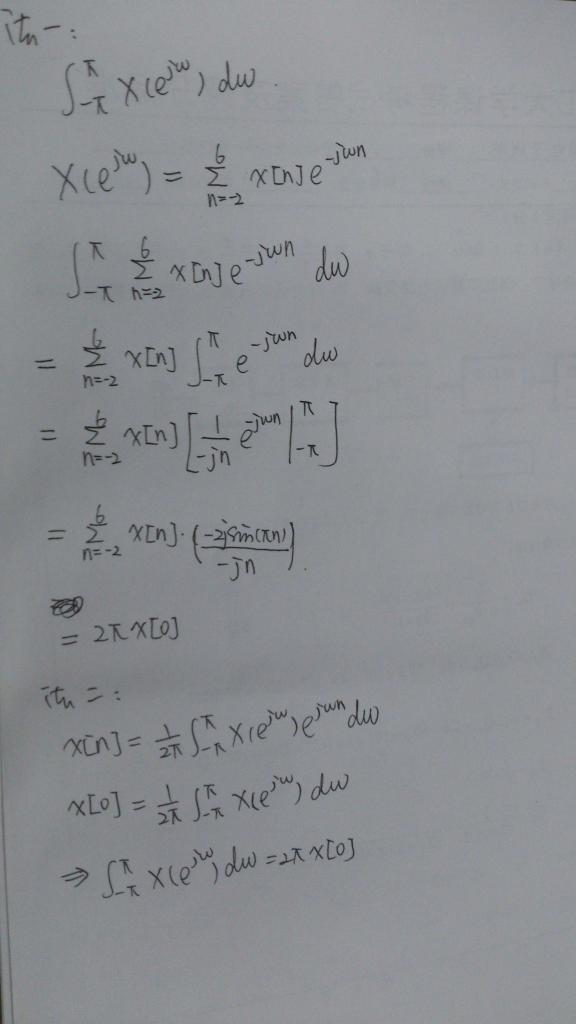 证一:
∫_{-π}^{π} X(e^{jω}) dω.
X(e^{jω}) = Σ_{n=-2}^{6} x[n] e^{-jωn}
∫_{-π}^{π} Σ_{n=-2}^{6} x[n] e^{-jωn} dω
= Σ_{n=-2}^{6} x[n] ∫_{-π}^{π} e^{-jωn} dω
= Σ_{n=-2}^{6} x[n] [ \frac{1}{-jn} e^{-jωn} |_{-π}^{π} ]
= Σ_{n=-2}^{6} x[n] · ( \frac{-2j sin(πn)}{-jn} ).
= 2π x[0]
证二:
x[n] = \frac{1}{2π} ∫_{-π}^{π} X(e^{jω}) e^{jωn} dω
x[0] = \frac{1}{2π} ∫_{-π}^{π} X(e^{jω}) dω
⇒ ∫_{-π}^{π} X(e^{jω}) dω = 2π x[0]